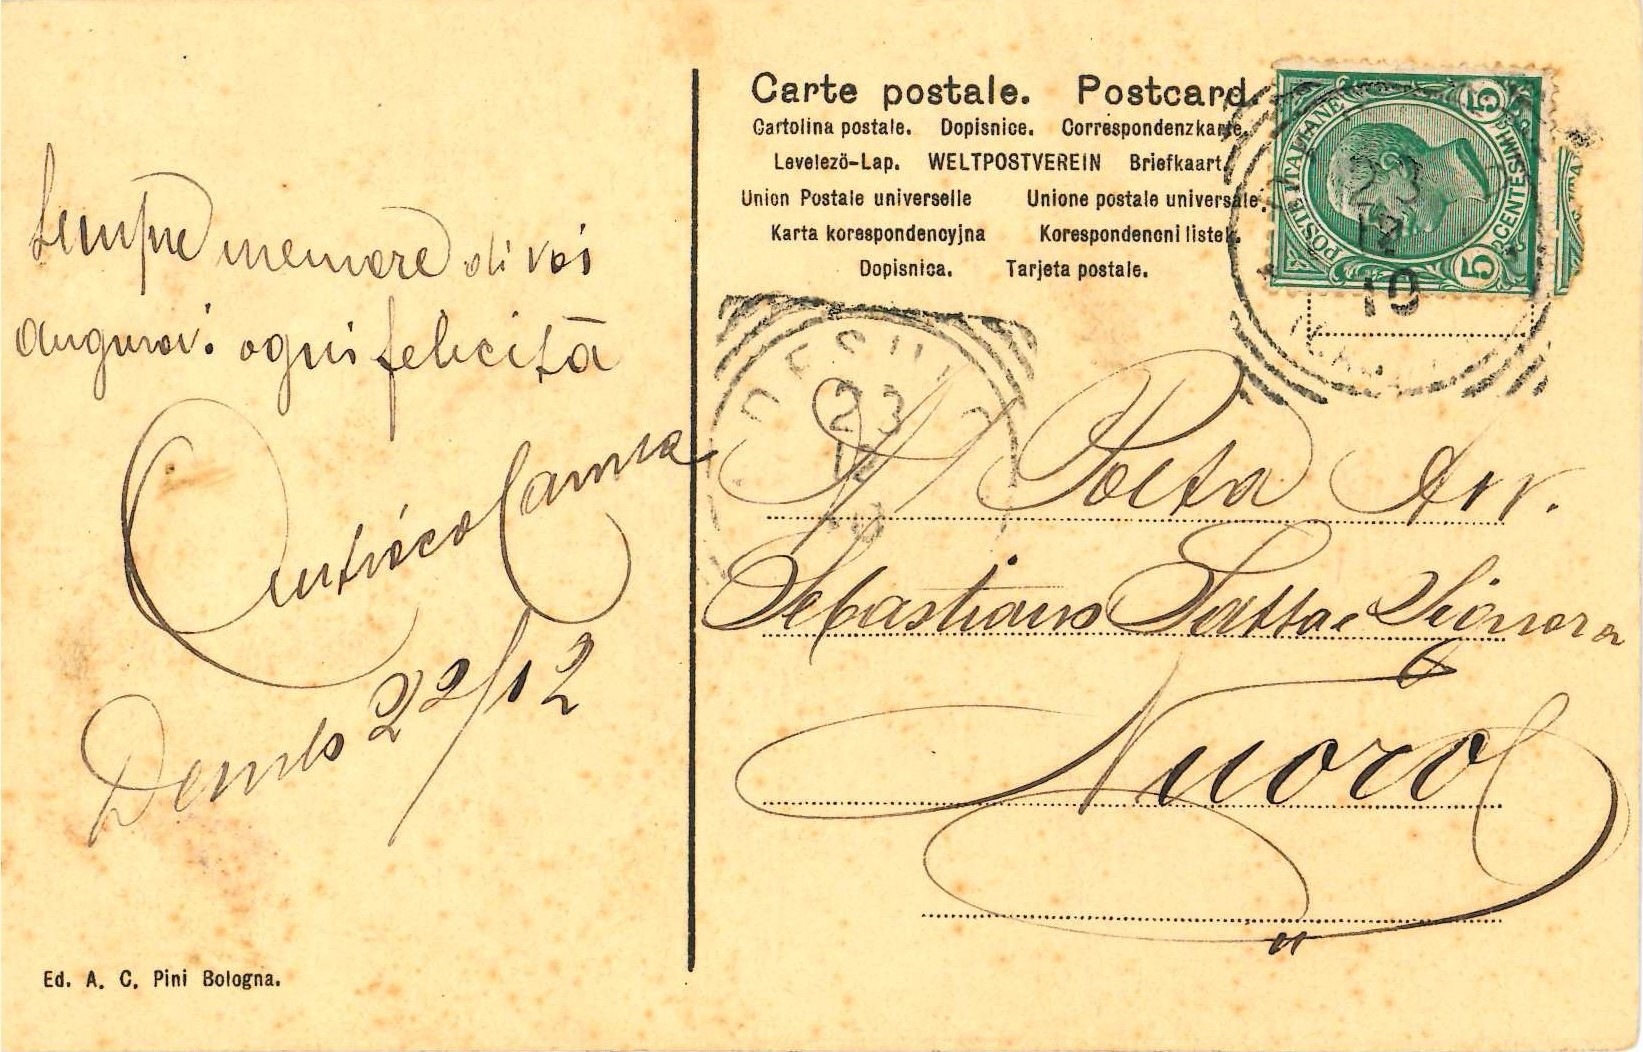 Sempre memore di voi
augurovi ogni felicità
Antíoco Canna
Desulo 22/12
Ed. A. C. Pini Bologna.
Carte postale. Postcard.
Cartolina postale. Dopisnice. Correspondenzkarte.
Levelező-Lap. WELTPOSTVEREIN Briefkaart.
Union Postale universelle Unione postale universale.
Karta korespondencyjna Korespondencni listek.
Dopisnica. Tarjeta postale.
POSTE ITALIANE
5 CENTESIMI 5
23
12
10
DESULO
23
12
10
Al Poeta Avv.
Sebastiano Satta e Signora
Nuoro